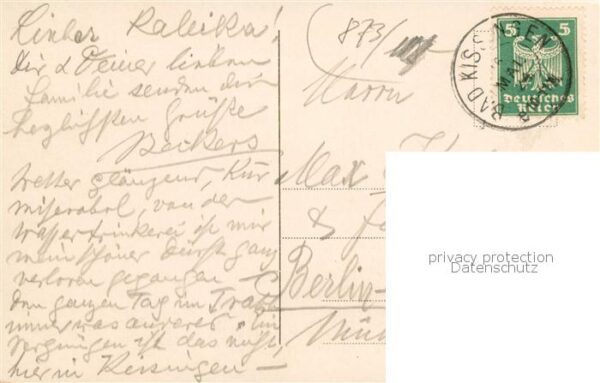 Lieber Kaleika!
Dir & Deiner lieben
Familie senden die
herzlichsten Grüße
Beckers
Wetter glänzend, Kur
miserabel, von der
Wassertrinkerei ist mir
mein schöner Durst ganz
verloren gegangen –
den ganzen Tag im Trabb
immer was anderes – Ein
Vergnügen ist das nicht,
hier in Kissingen –
873/
Herrn
Max
& 
Berlin-
BAD KISSINGEN
MAI
5 5
Deutsches
Reich
privacy protection
Datenschutz